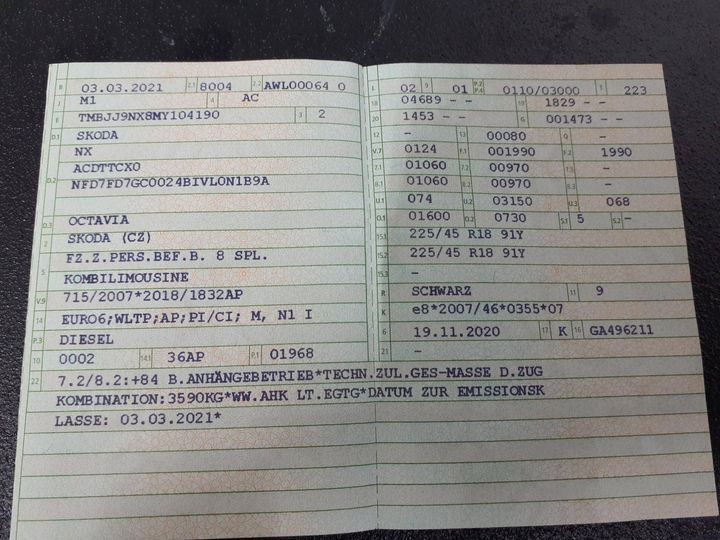 B 03.03.2021 2.1 8004 2.2 AWL00064 0
J M1 4 AC
E TMBJJ9NX8MY104190 3 2
D.1 SKODA
NX
D.2 ACDTTCX0
NFD7FD7GC0024BIVLON1B9A
D.3 OCTAVIA
2 SKODA (CZ)
5 FZ.Z.PERS.BEF.B. 8 SPL.
KOMBILIMOUSINE
V.9 715/2007*2018/1832AP
14 EURO6;WLTP;AP;PI/CI; M, N1 I
P.3 DIESEL
10 0002 14.1 36AP P.1 01968
L 02 9 01 P.2 P.4 0110/03000 T 223
18 04689 - - 19 1829 - -
20 1453 - - G 001473 - -
12 - 13 00080 Q -
V.7 0124 F.1 001990 F.2 1990
7.1 01060 7.2 00970 7.3 -
8.1 01060 8.2 00970 8.3 -
U.1 074 U.2 03150 U.3 068
O.1 01600 O.2 0730 S.1 5 S.2 -
15.1 225/45 R18 91Y
15.2 225/45 R18 91Y
15.3 -
R SCHWARZ 11 9
K e8*2007/46*0355*07
6 19.11.2020 17 K 16 GA496211
21 -
22 7.2/8.2:+84 B.ANHÄNGEBETRIEB*TECHN.ZUL.GES-MASSE D.ZUG
KOMBINATION:3590KG*WW.AHK LT.EGTG*DATUM ZUR EMISSIONSK
LASSE: 03.03.2021*